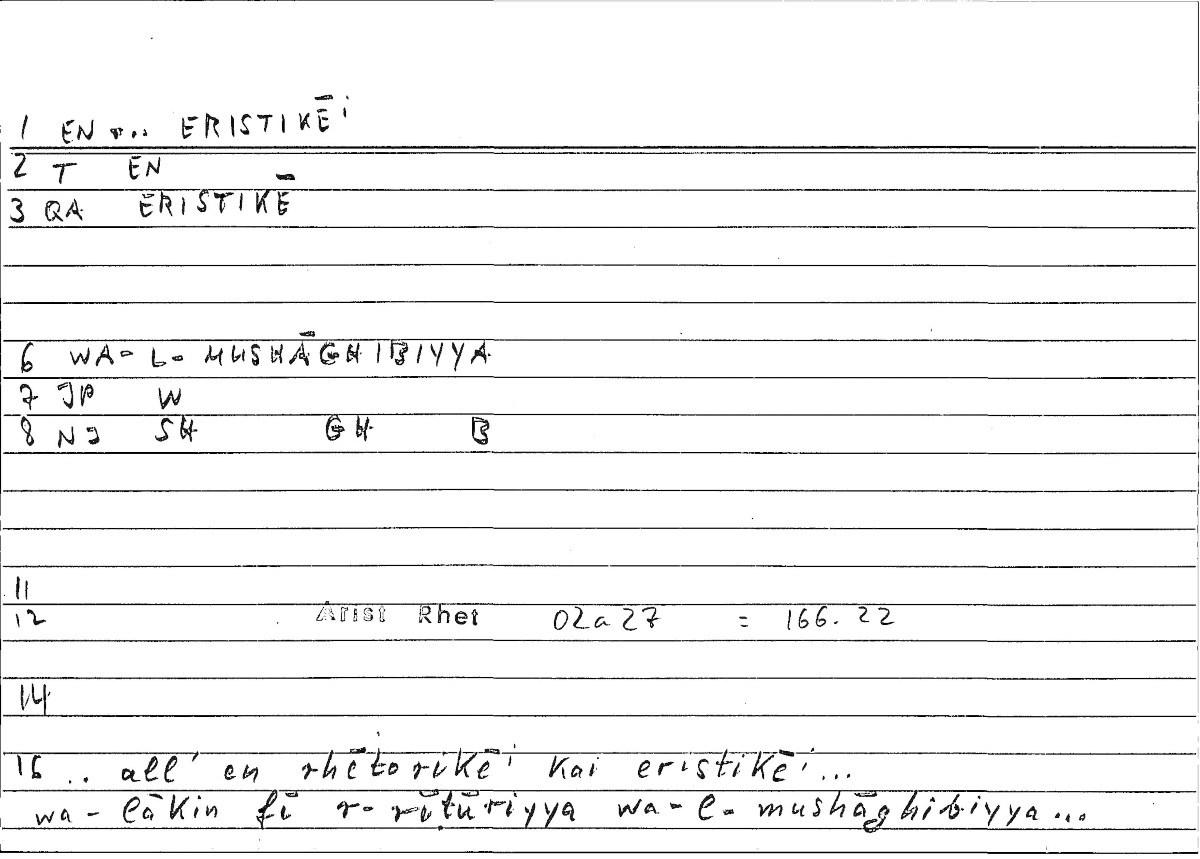 1 EN ... ERISTIKĒⁱ
2 T EN
3 QA ERISTIKĒ
6 WA-L-MUSHĀGHIBIYYA
7 JP W
8 NJ SH GH B
11
12 Arist Rhet 02a27 = 166.22
14
16 .. all' en rhētorikēⁱ kai eristikēⁱ...
wa-lākin fī r-rīṭūriyya wa-l-mushāghibiyya...